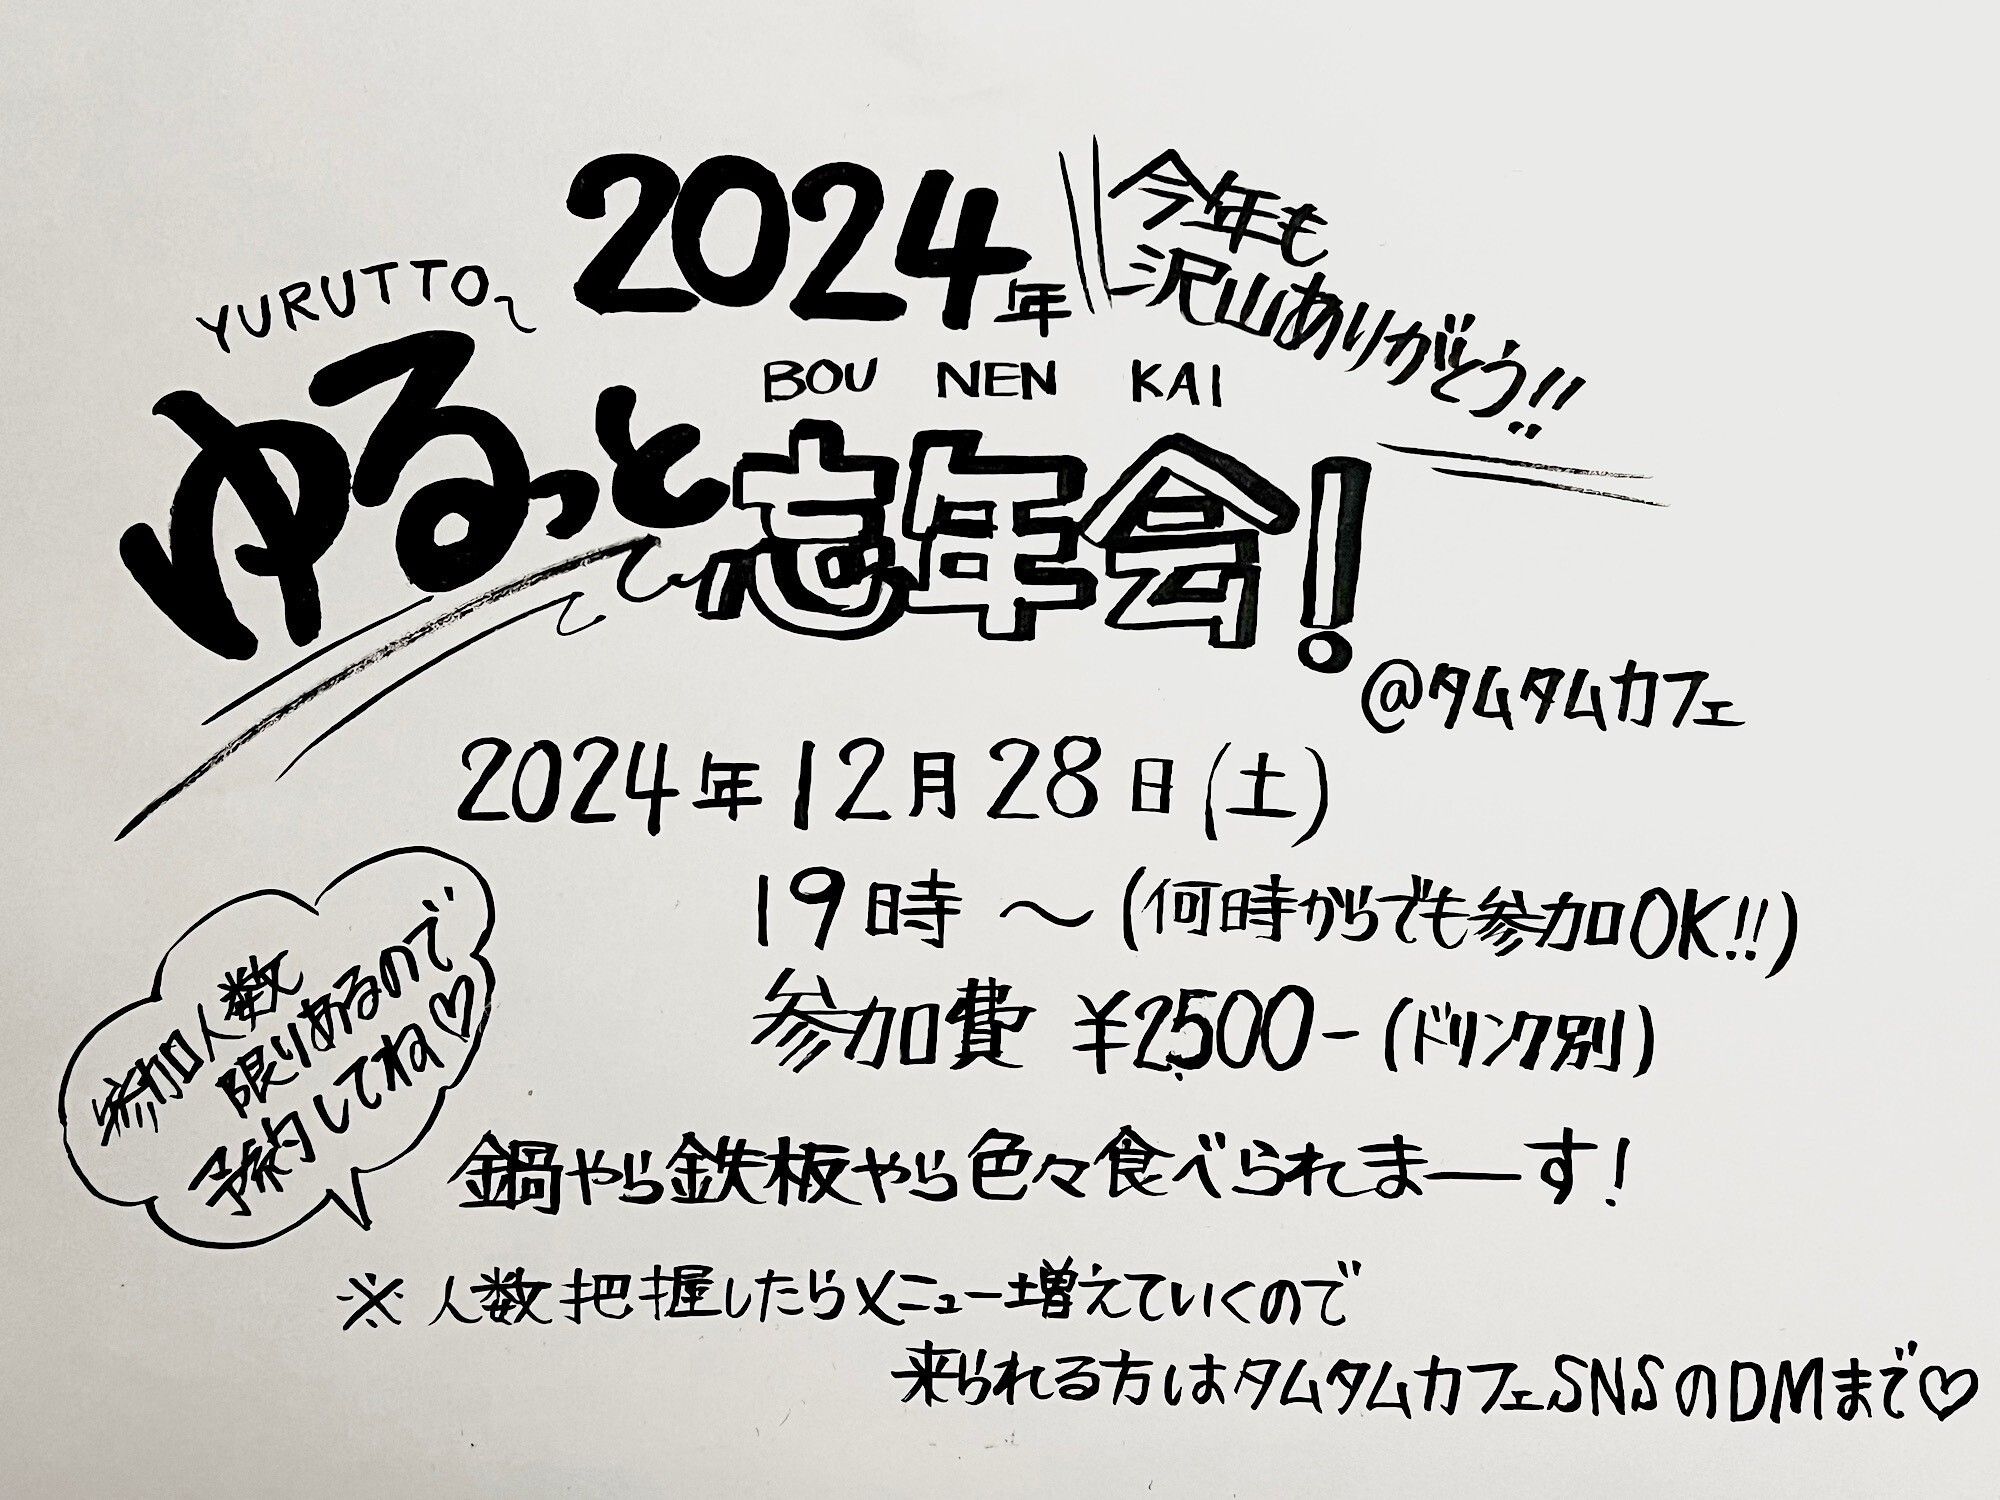 2024年
今年も
沢山ありがとう!!
YURUTTO〜
BOU NEN KAI
ゆるっと忘年会!
@タムタムカフェ
2024年12月28日(土)
19時〜(何時からでも参加OK!!)
参加費 ¥2,500-(ドリンク別)
参加人数
限りあるので
予約してね♡
鍋やら鉄板やら色々食べられまーす!
※人数把握したらメニュー増えていくので
来られる方はタムタムカフェSNSのDMまで♡